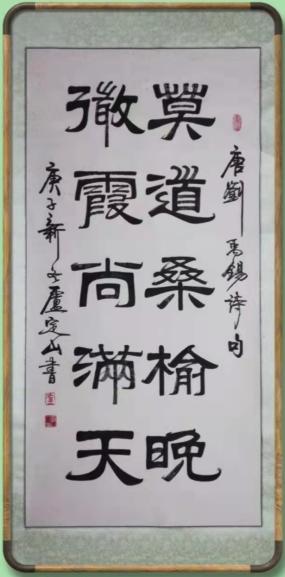 唐劉禹錫詩句
莫道桑榆晚
徹霞尚滿天
庚子新冬盧定山書